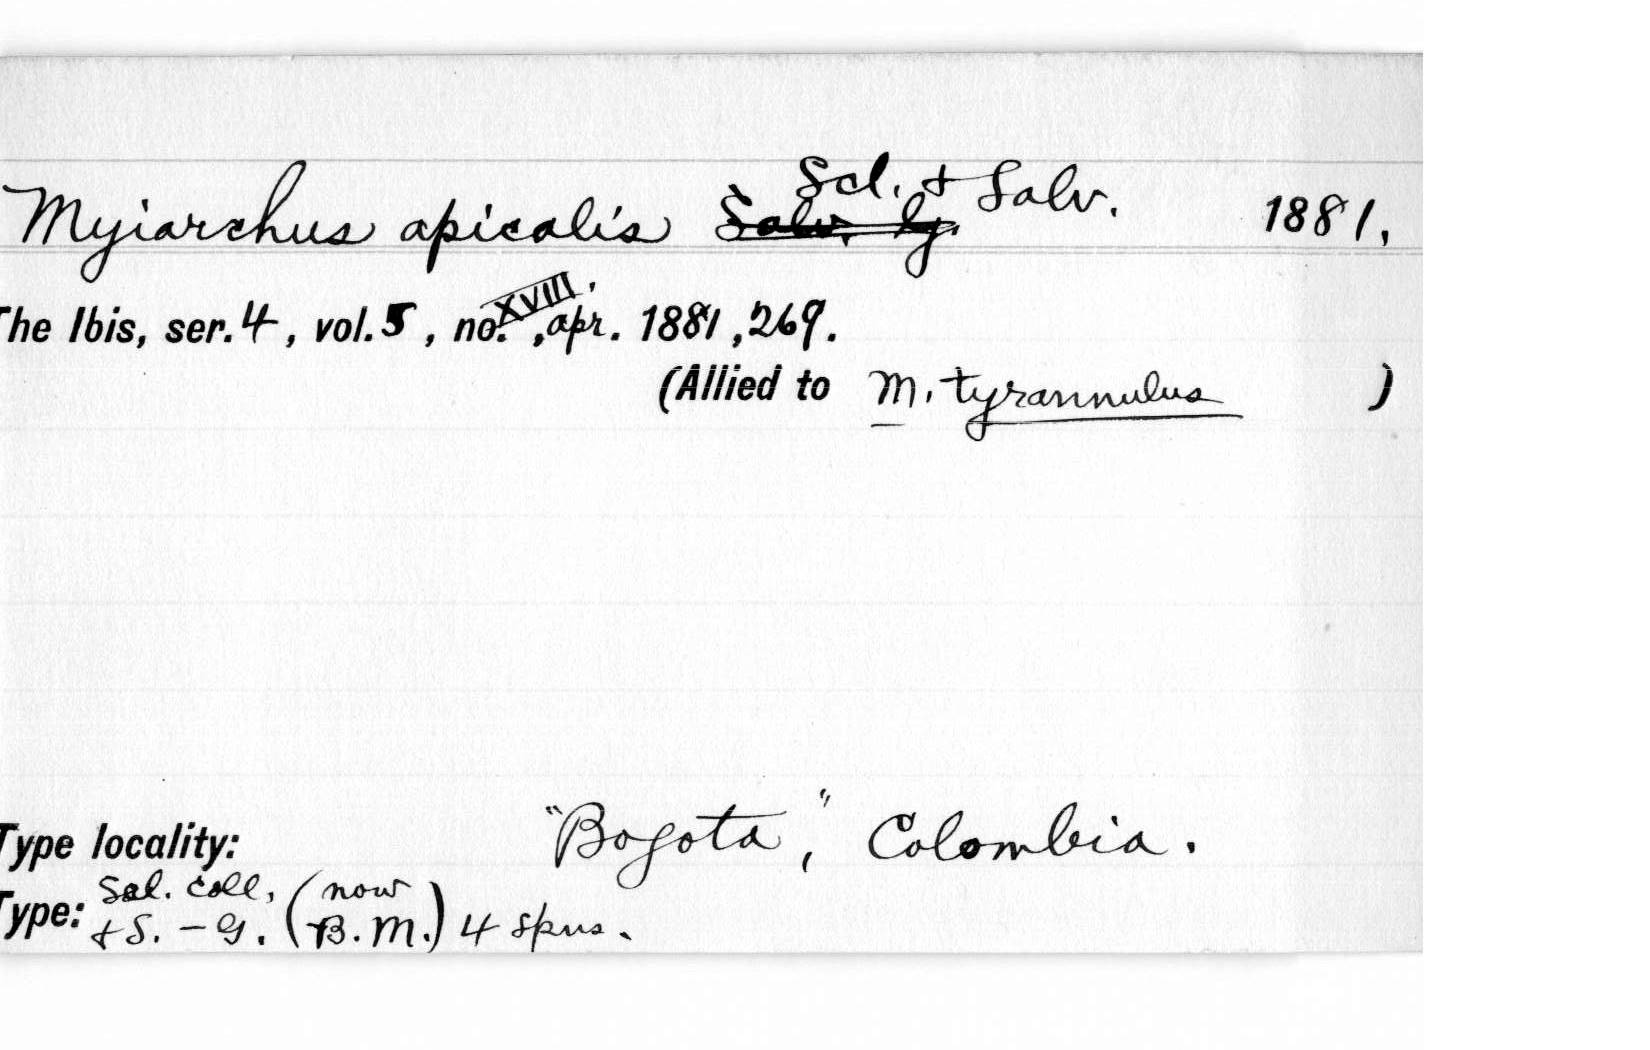 Scl. & Salv.
Myiarchus apicalis Salv. 1881.
The Ibis, ser. 4, vol. 5, no. XVIII, apr. 1881, 269.
(Allied to M. tyrannulus )
Type locality: "Bogota," Colombia.
Type: Scl. coll. & S. - G. (now B.M.) 4 spns.